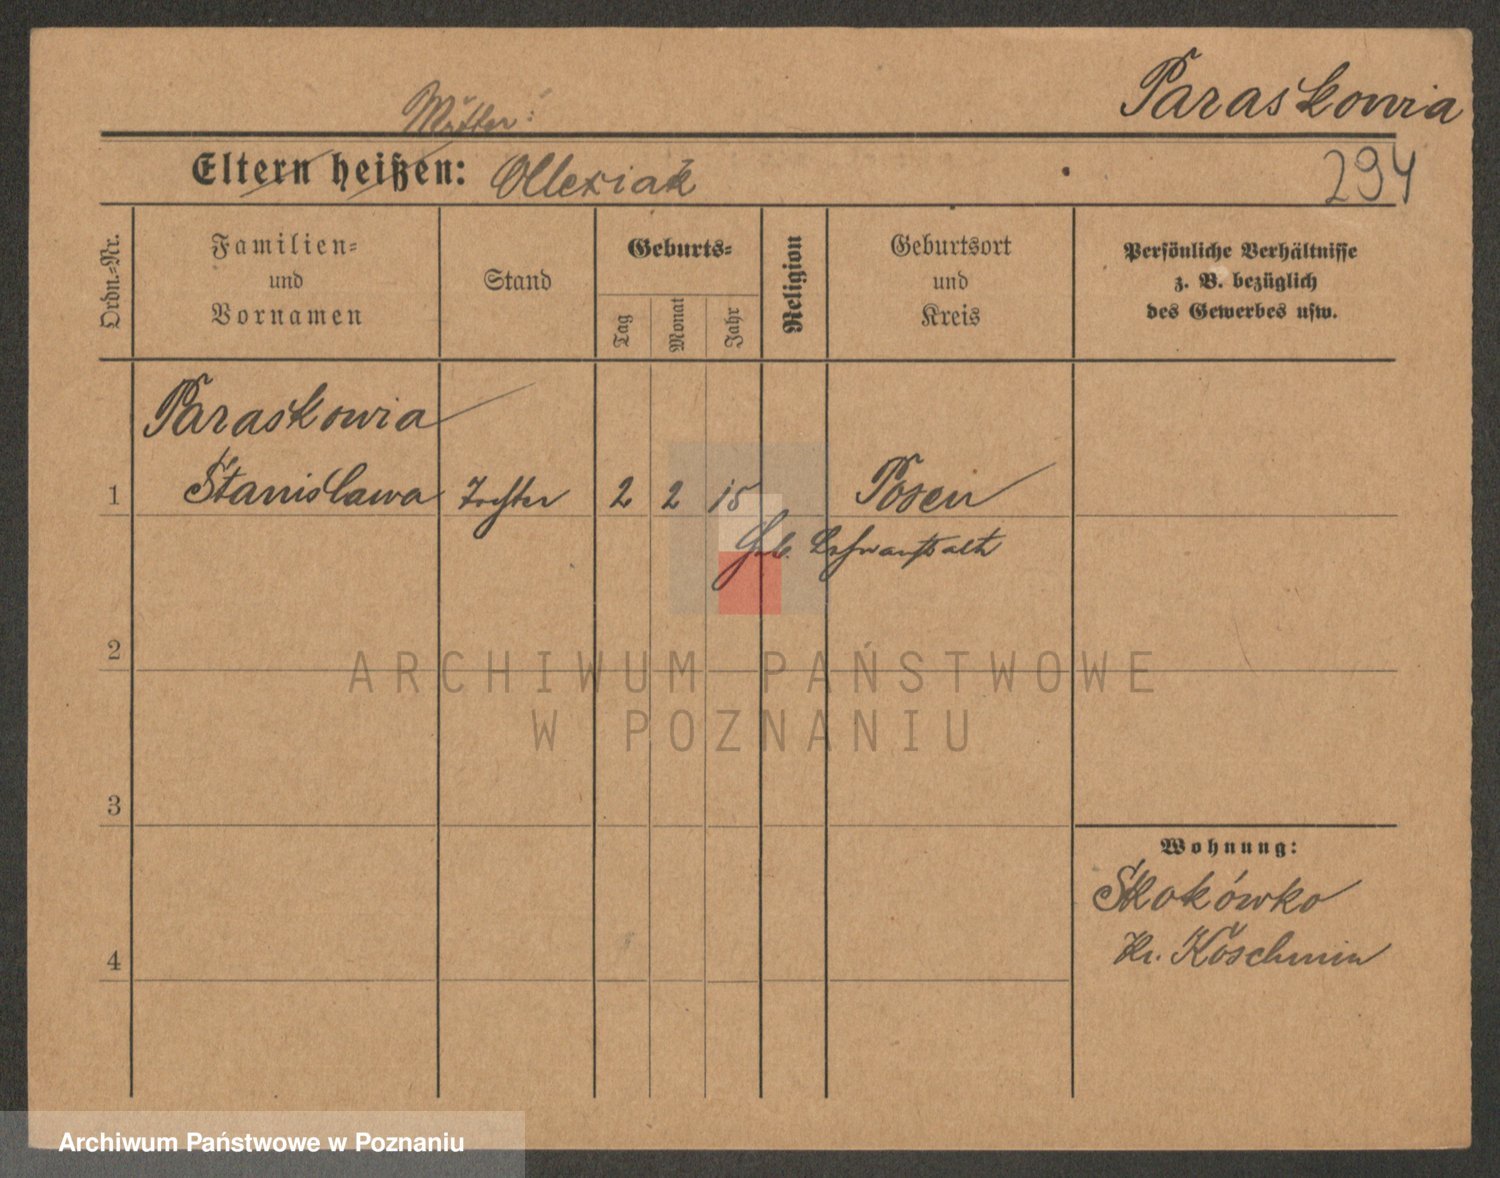 Paraskowia
Mutter:
Eltern heißen: Ollexiak
294
Ordn.-Nr.
Familien-
und
Vornamen
Stand
Geburts-
Tag
Monat
Jahr
Religion
Geburtsort
und
Kreis
Persönliche Verhältnisse
z. B. bezüglich
des Gewerbes usw.
Paraskowia
1 Stanislawa Tochter 2 2 15 Posen
2
3
4
Wohnung:
Skokówko
Kr. Koschmin
ARCHIWUM PAŃSTWOWE
W POZNANIU
Archiwum Państwowe w Poznaniu